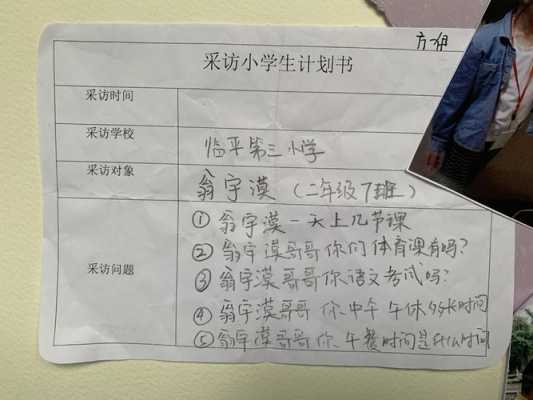 方
采访小学生计划书
采访时间
采访学校
临平第三小学
采访对象
翁宇漠（二年级7班）
采访问题
① 翁宇漠一天上几节课
② 翁宇漠哥哥你们体育课有吗？
③ 翁宇漠哥哥你语文考试吗？
④ 翁宇漠哥哥你中午午休多长时间
⑤ 翁宇漠哥哥你午餐时间是什么时间